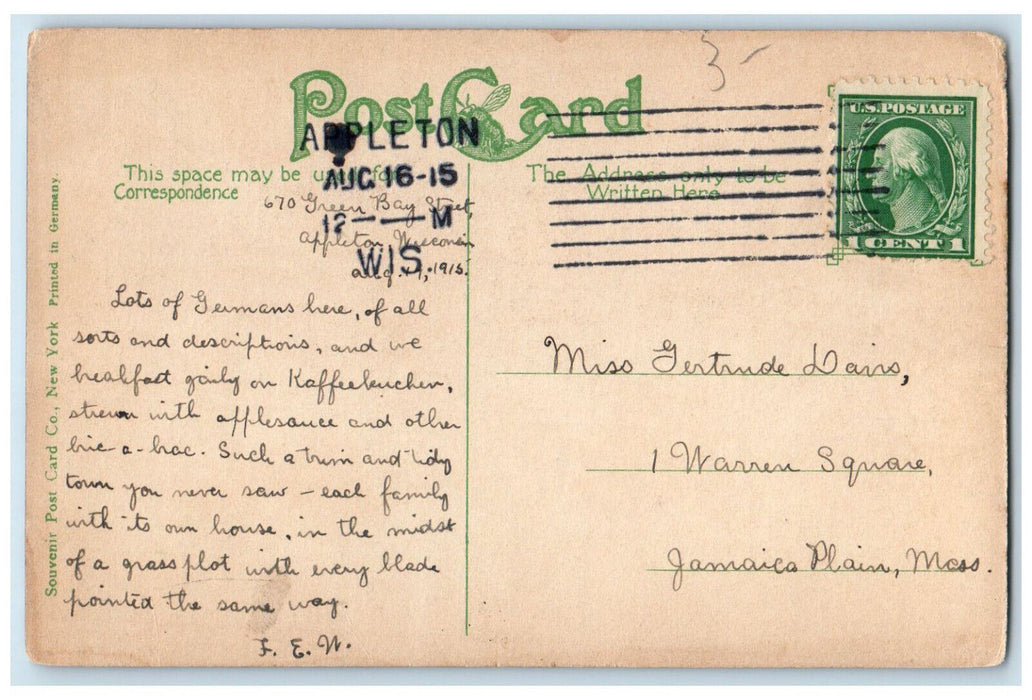 3-
Post Card
U.S. POSTAGE
1 CENT 1
APPLETON
AUG 16-15
12 — M
WIS.
This space may be used for
Correspondence
The Address only to be
Written Here
670 Green Bay Street,
Appleton, Wisconsin
Aug. 1915.
Lots of Germans here, of all
sorts and descriptions, and we
breakfast gaily on Kaffeekuchen,
strewn with applesauce and other
bric-a-brac. Such a trim and tidy
town you never saw – each family
with its own house, in the midst
of a grass plot with every blade
pointed the same way.
F. E. W.
Miss Gertrude Davis,
1 Warren Square,
Jamaica Plain, Mass.
Souvenir Post Card Co., New York Printed in Germany.